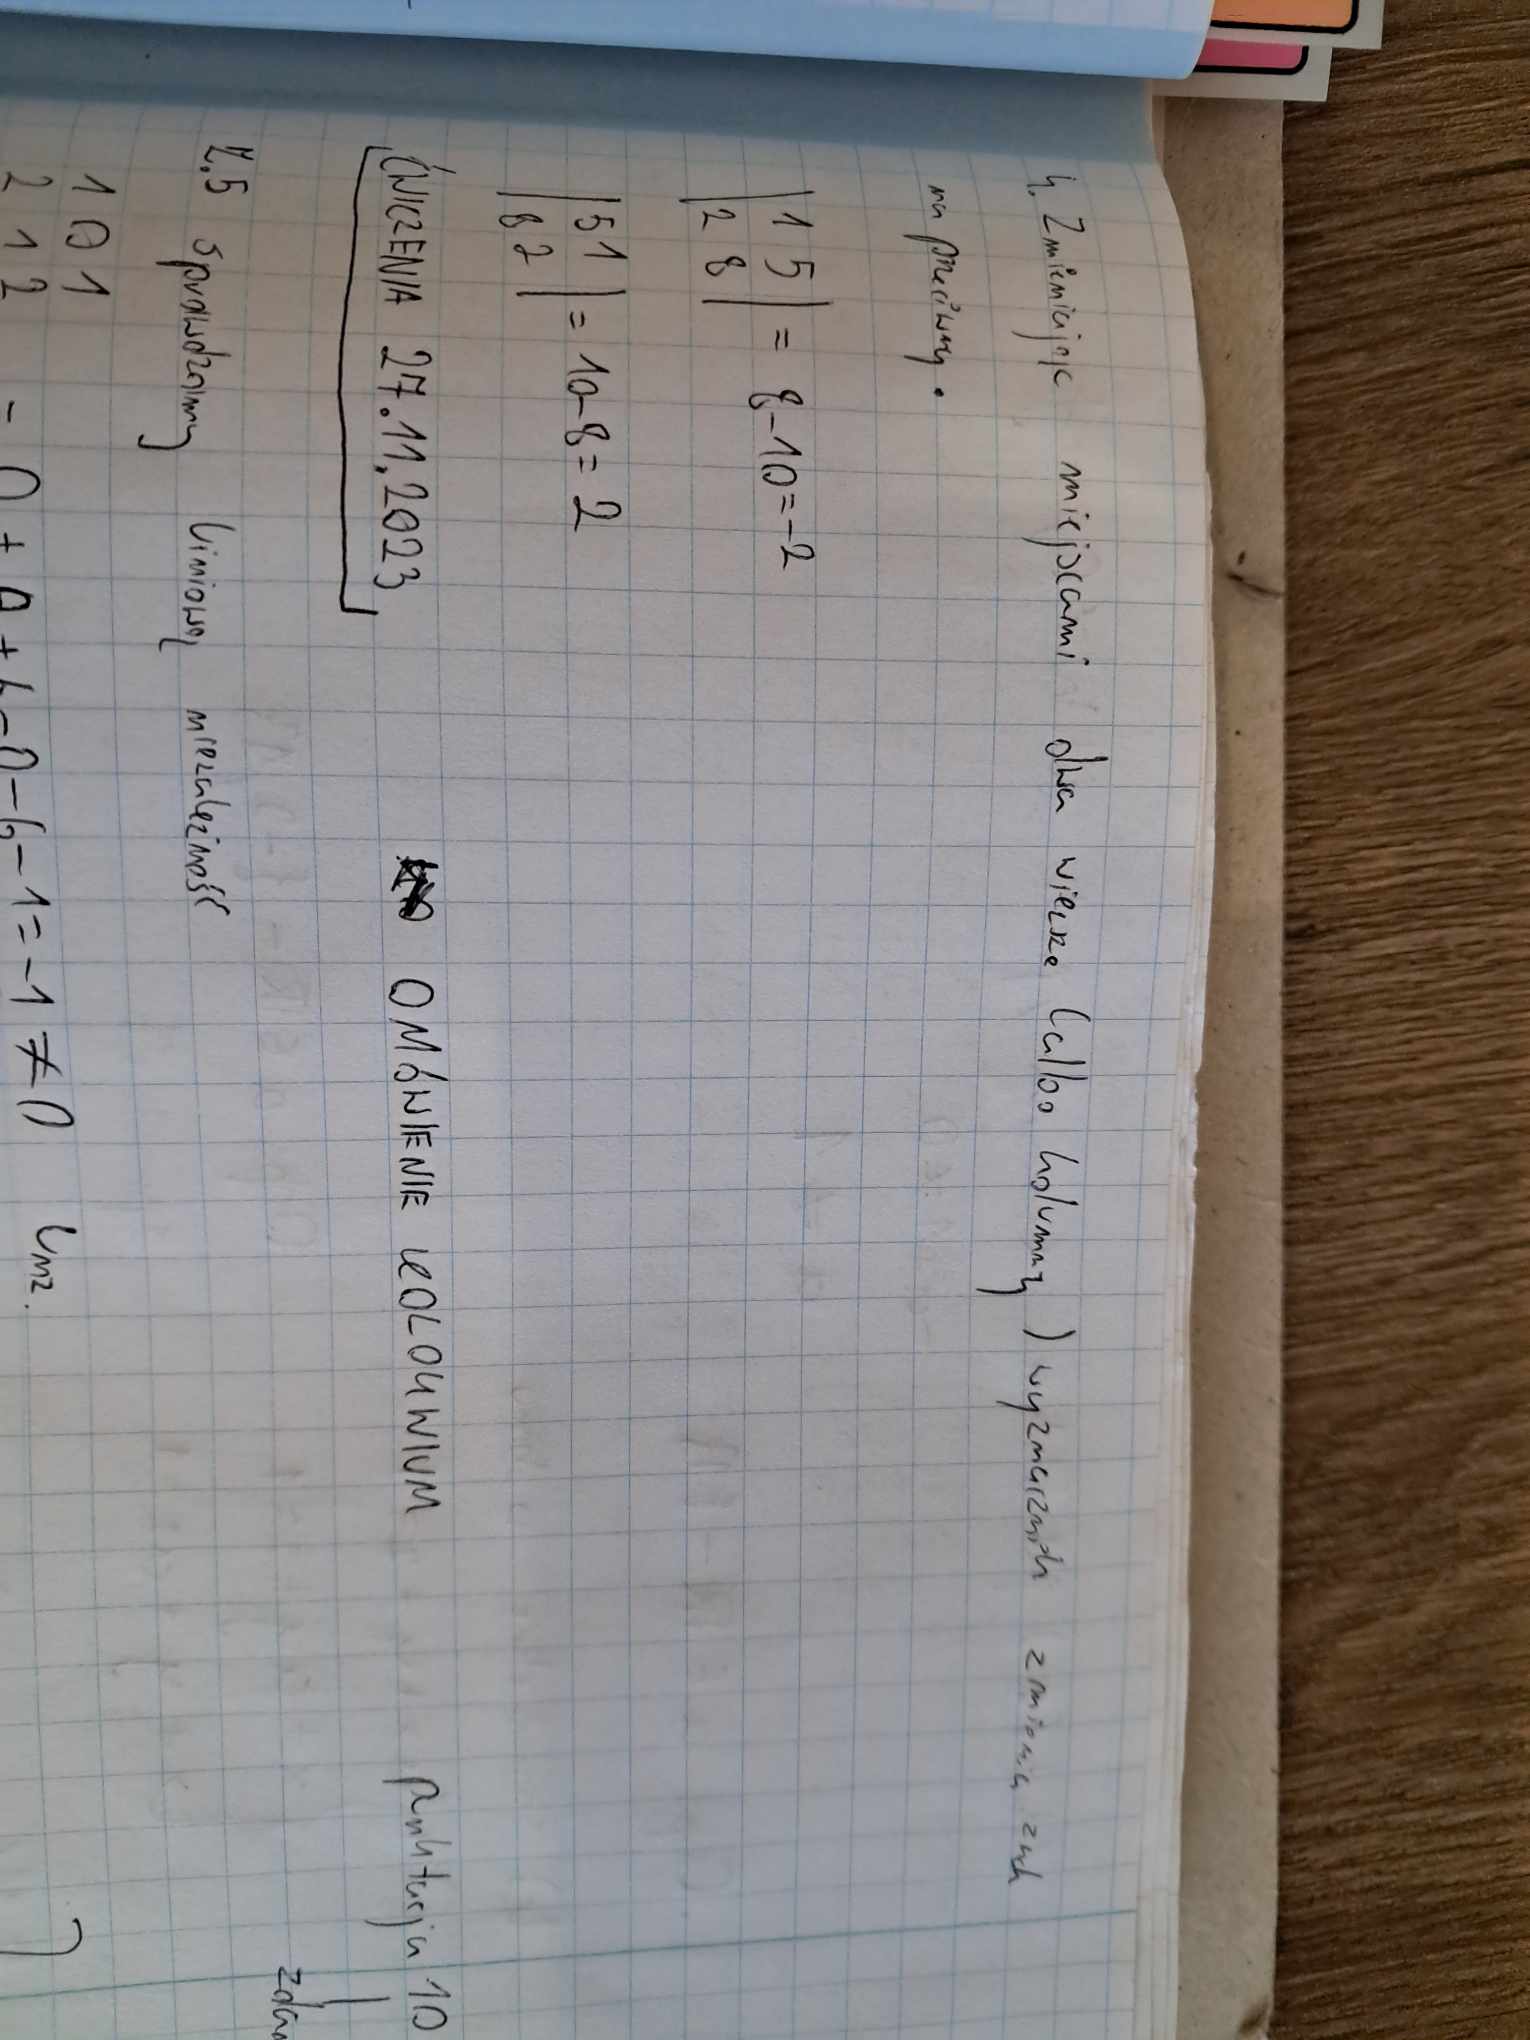 4. Zmieniając miejscami dwa wiersze (albo kolumny) wyznacznik zmienia znak
na przeciwny.
| 1 5 |
| 2 8 | = 8-10=-2
| 5 1 |
| 8 2 | = 10-8=2
ĆWICZENIA 27.11.2023 OMÓWIENIE KOLOKWIUM punktacja 10
Z.5 Sprawdzamy liniową niezależność
1 0 1
2 1 2 = 0+0+6-0-6-1=-1≠0 lnz.